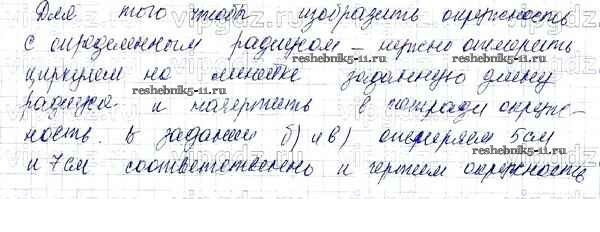 Для того чтобы изобразить окружность
с определенным радиусом – нужно отмерить
циркулем на линейке заданную длину
радиуса и начертить в тетради окруж-
ность. В задании б) и в) отмеряем 5 см
и 7 см соответственно и чертим окружность
reshebnik5-11.ru
reshebnik5-11.ru
reshebnik5-11.ru